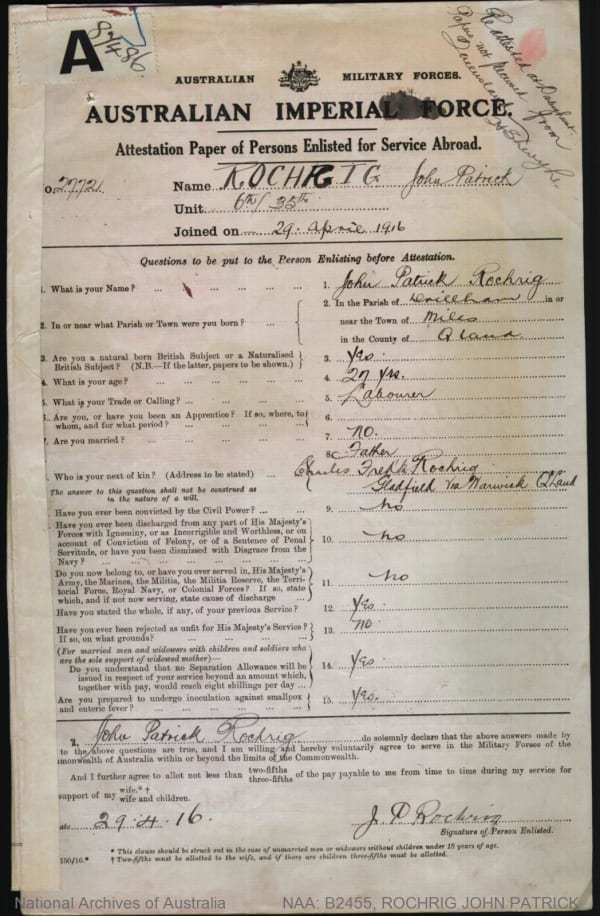 A 87486
AUSTRALIAN MILITARY FORCES.
AUSTRALIAN IMPERIAL FORCE.
Attestation Paper of Persons Enlisted for Service Abroad.
Re attested at
Papers not received from
o. 2772
Name ROCHRIG John Patrick
Unit 6th/35th
Joined on 29. April 1916
Questions to be put to the Person Enlisting before Attestation.
1. What is your Name? ... 1. John Patrick Rochrig
2. In or near what Parish or Town were you born? ... 2. In the Parish of Drillham in or
near the Town of Miles
in the County of Qland
3. Are you a natural born British Subject or a Naturalised
British Subject? (N.B.—If the latter, papers to be shown.) 3. Yes.
4. What is your age? ... 4. 27 yrs.
5. What is your Trade or Calling? ... 5. Labourer
6. Are you, or have you been an Apprentice? If so, where, to
whom, and for what period? ... 6.
7. Are you married? ... 7. NO.
8. Father
. Who is your next of kin? (Address to be stated) ... Charles Fredk Rochrig
Gladfield via Warwick Qland
The answer to this question shall not be construed as
in the nature of a will.
Have you ever been convicted by the Civil Power? ... 9. No
Have you ever been discharged from any part of His Majesty's
Forces with Ignominy, or as Incorrigible and Worthless, or on
account of Conviction of Felony, or of a Sentence of Penal
Servitude, or have you been Dismissed with Disgrace from the
Navy? ... 10. No
Do you now belong to, or have you ever served in, His Majesty's
Army, the Marines, the Militia, the Militia Reserve, the Terri-
torial Force, Royal Navy, or Colonial Forces? If so, state
which, and if not now serving, state cause of discharge ... 11. No
Have you stated the whole, if any, of your previous Service? 12. Yes.
Have you ever been rejected as unfit for His Majesty's Service?
If so, on what grounds? ... 13. NO.
(For married men and widowers with children and soldiers who
are the sole support of widowed mother)—
Do you understand that no Separation Allowance will be
issued in respect of your service beyond an amount which,
together with pay, would reach eight shillings per day ... 14. Yes.
Are you prepared to undergo inoculation against smallpox
and enteric fever? ... 15. Yes.
I, John Patrick Rochrig do solemnly declare that the above answers made by
to the above questions are true, and I am willing and hereby voluntarily agree to serve in the Military Forces of the
mmonwealth of Australia within or beyond the limits of the Commonwealth.
And I further agree to allot not less than two-fifths three-fifths of the pay payable to me from time to time during my service for
support of my wife.* † wife and children.
ate 29.4.16. J. P Rochrig
Signature of Person Enlisted.
* This clause should be struck out in the case of unmarried men or widowers without children under 18 years of age.
150/16.* † Two-fifths must be allotted to the wife, and if there are children three-fifths must be allotted.
National Archives of Australia NAA: B2455, ROCHRIG JOHN PATRICK